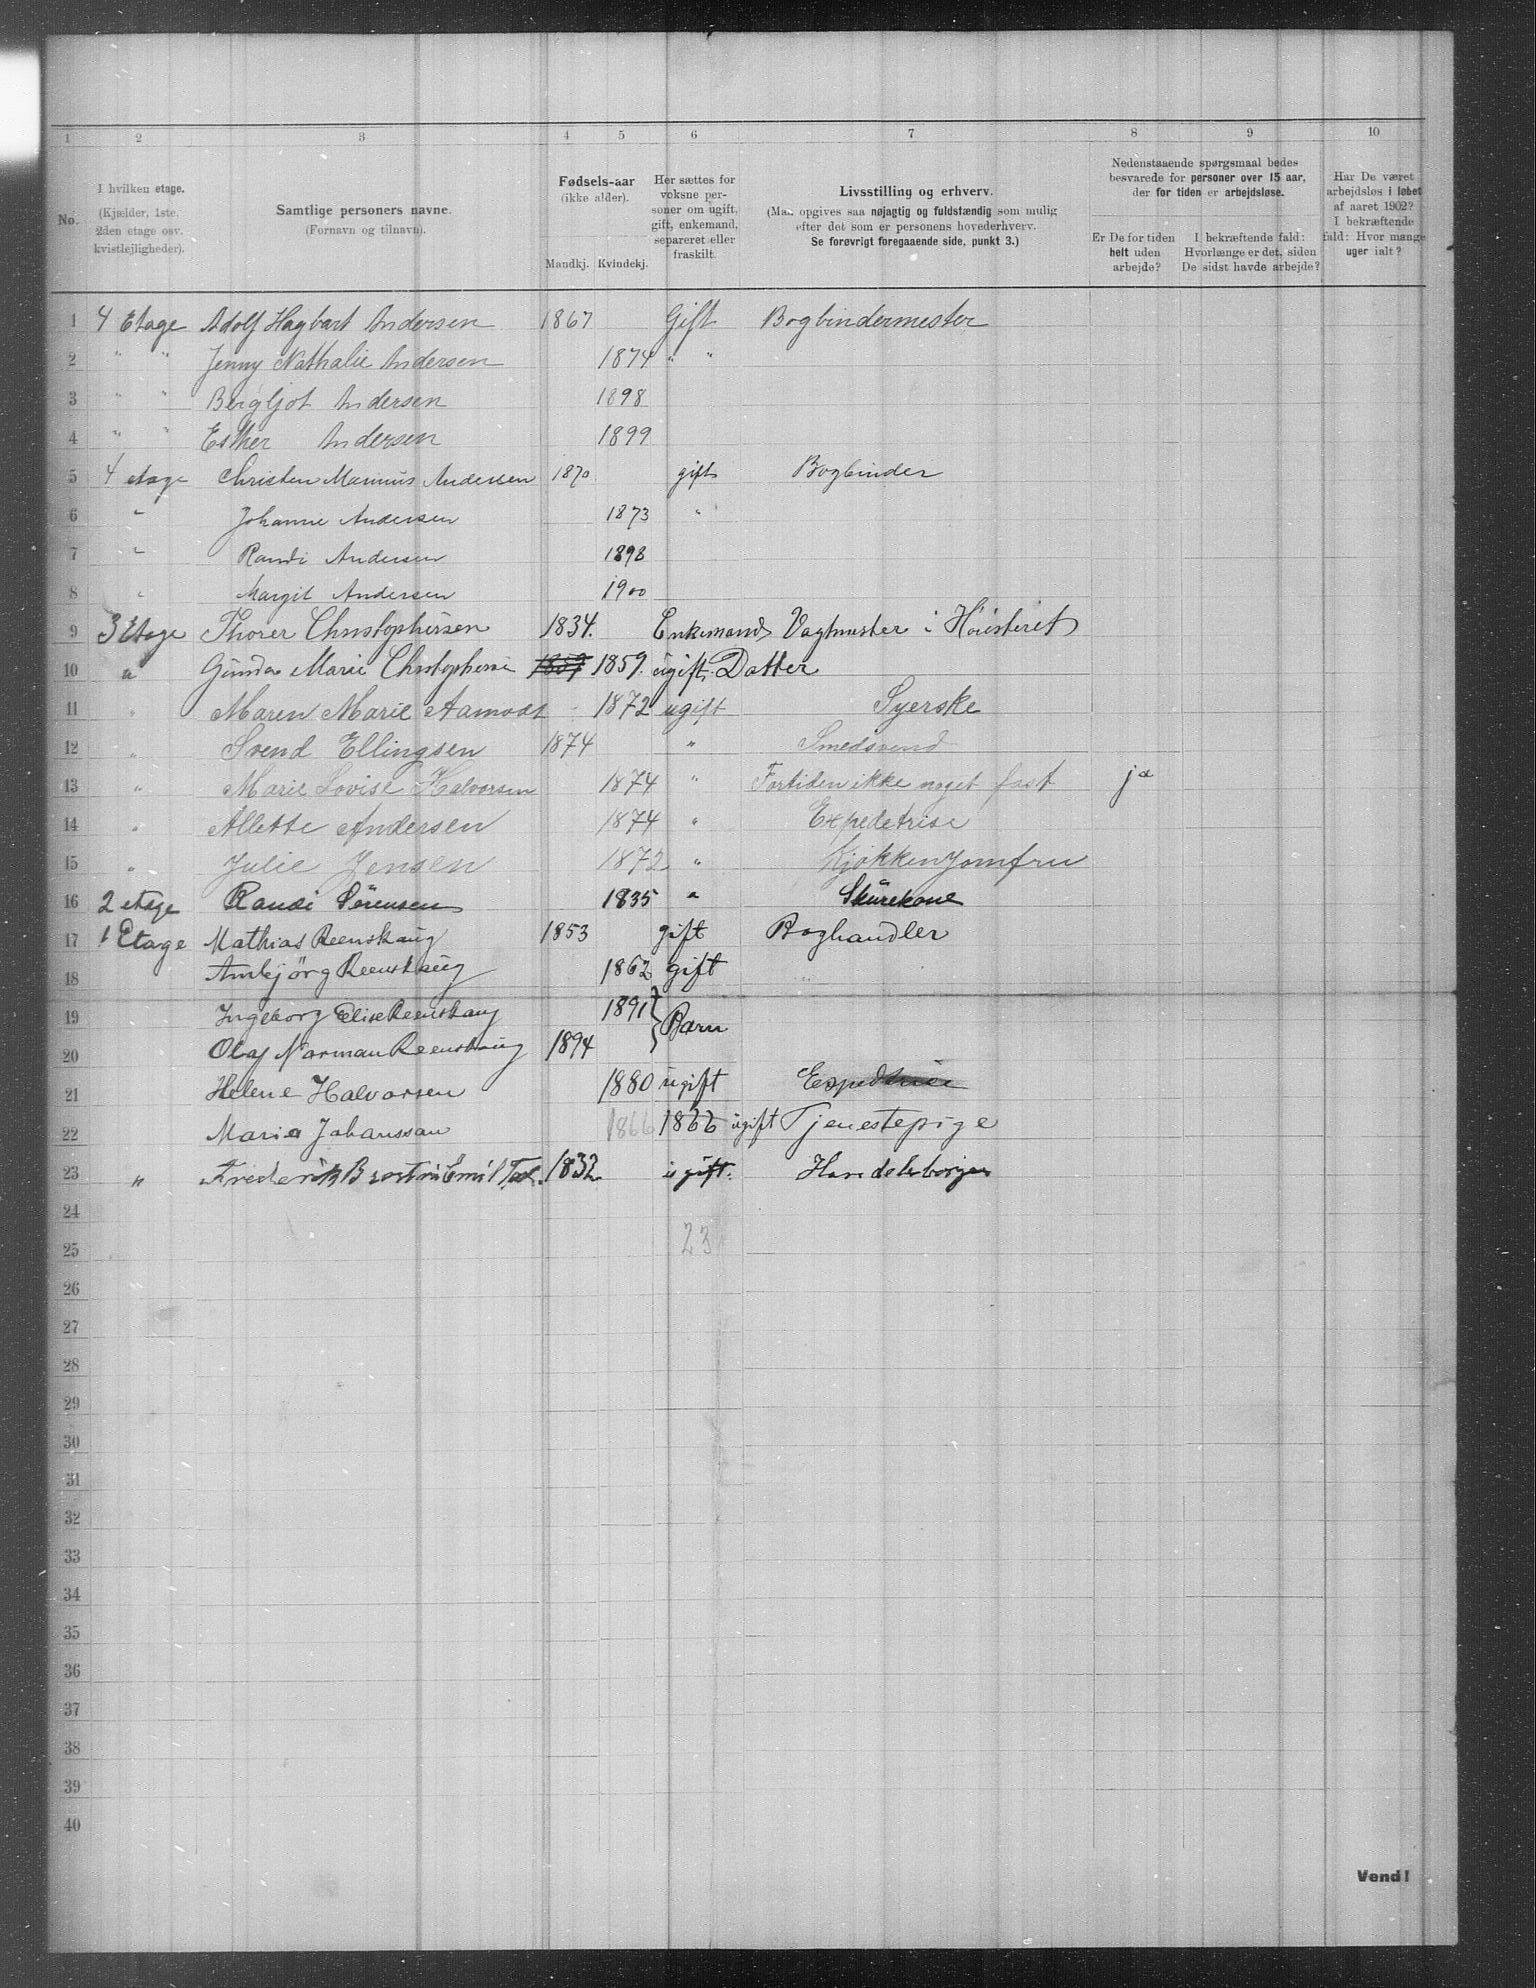 1 2 3 4 5 6 7 8 9 10
No.
I hvilken etage. (Kjælder, 1ste. 2den etage osv. kvistleiligheder).
Samtlige personers navne. (Fornavn og tilnavn).
Fødsels-aar (ikke alder). Mandkj. Kvindekj.
Her sættes for voksne personer om ugift, gift, enkemand, separeret eller fraskilt.
Livsstilling og erhverv. (Maa opgives saa nøjagtig og fuldstændig som mulig efter det som er personens hovederhverv. Se forøvrigt foregaaende side, punkt 3.)
Nedenstaaende spørgsmaal bedes besvarede for personer over 15 aar, der for tiden er arbejdsløse.
Er De for tiden helt uden arbejde?
I bekræftende fald: Hvorlænge er det, siden De sidst havde arbejde?
Har De været arbejdsløs i løbet af aaret 1902? I bekræftende fald: Hvor mange uger ialt?
1 4 Etage Adolf Hagbart Andersen 1867 Gift Bogbindermester
2 " " Jenny Nathalie Andersen 1874 " "
3 " " Bergljot Andersen 1898
4 " " Esther Andersen 1899
5 4 etage Christen Marinius Andersen 1870 gift Bogbinder
6 " Johanne Andersen 1873 "
7 " Randi Andersen 1898
8 " Margit Andersen 1900
9 3 Etage Thorer Christophersen 1834. Enkemand Vagtmester i Høiesteret
10 " Gunda Marie Christophersen 1859 1859. ugift. Datter
11 " Maren Marie Aamodt 1872 ugift Syerske
12 " Svend Ellingsen 1874 " Smedsvend
13 " Marie Lovise Halvorsen 1874 " Fortiden ikke noget fast ja
14 " Allette Andersen 1874 " Expedetrise
15 " Julie Jensen 1872 " Kjøkkenjomfru
16 2 etage Randi Sørensen 1835 " Skurekone
17 1 Etage Mathias Reenskaug 1853 gift Boghandler
18 Ambjörg Reenskaug 1862 gift
19 Ingeborg Elise Reenskaug 1891 } Barn
20 Olaf Norman Reenskaug 1894
21 Helene Halvorsen 1880 ugift Expedtrice
22 Maria Johanssan 1866 1866 ugift Tjenestepige
23 " Frederik Emil 1832 ugift. Handelsborger
24 23
25
26
27
28
29
30
31
32
33
34
35
36
37
38
39
40
Vend!